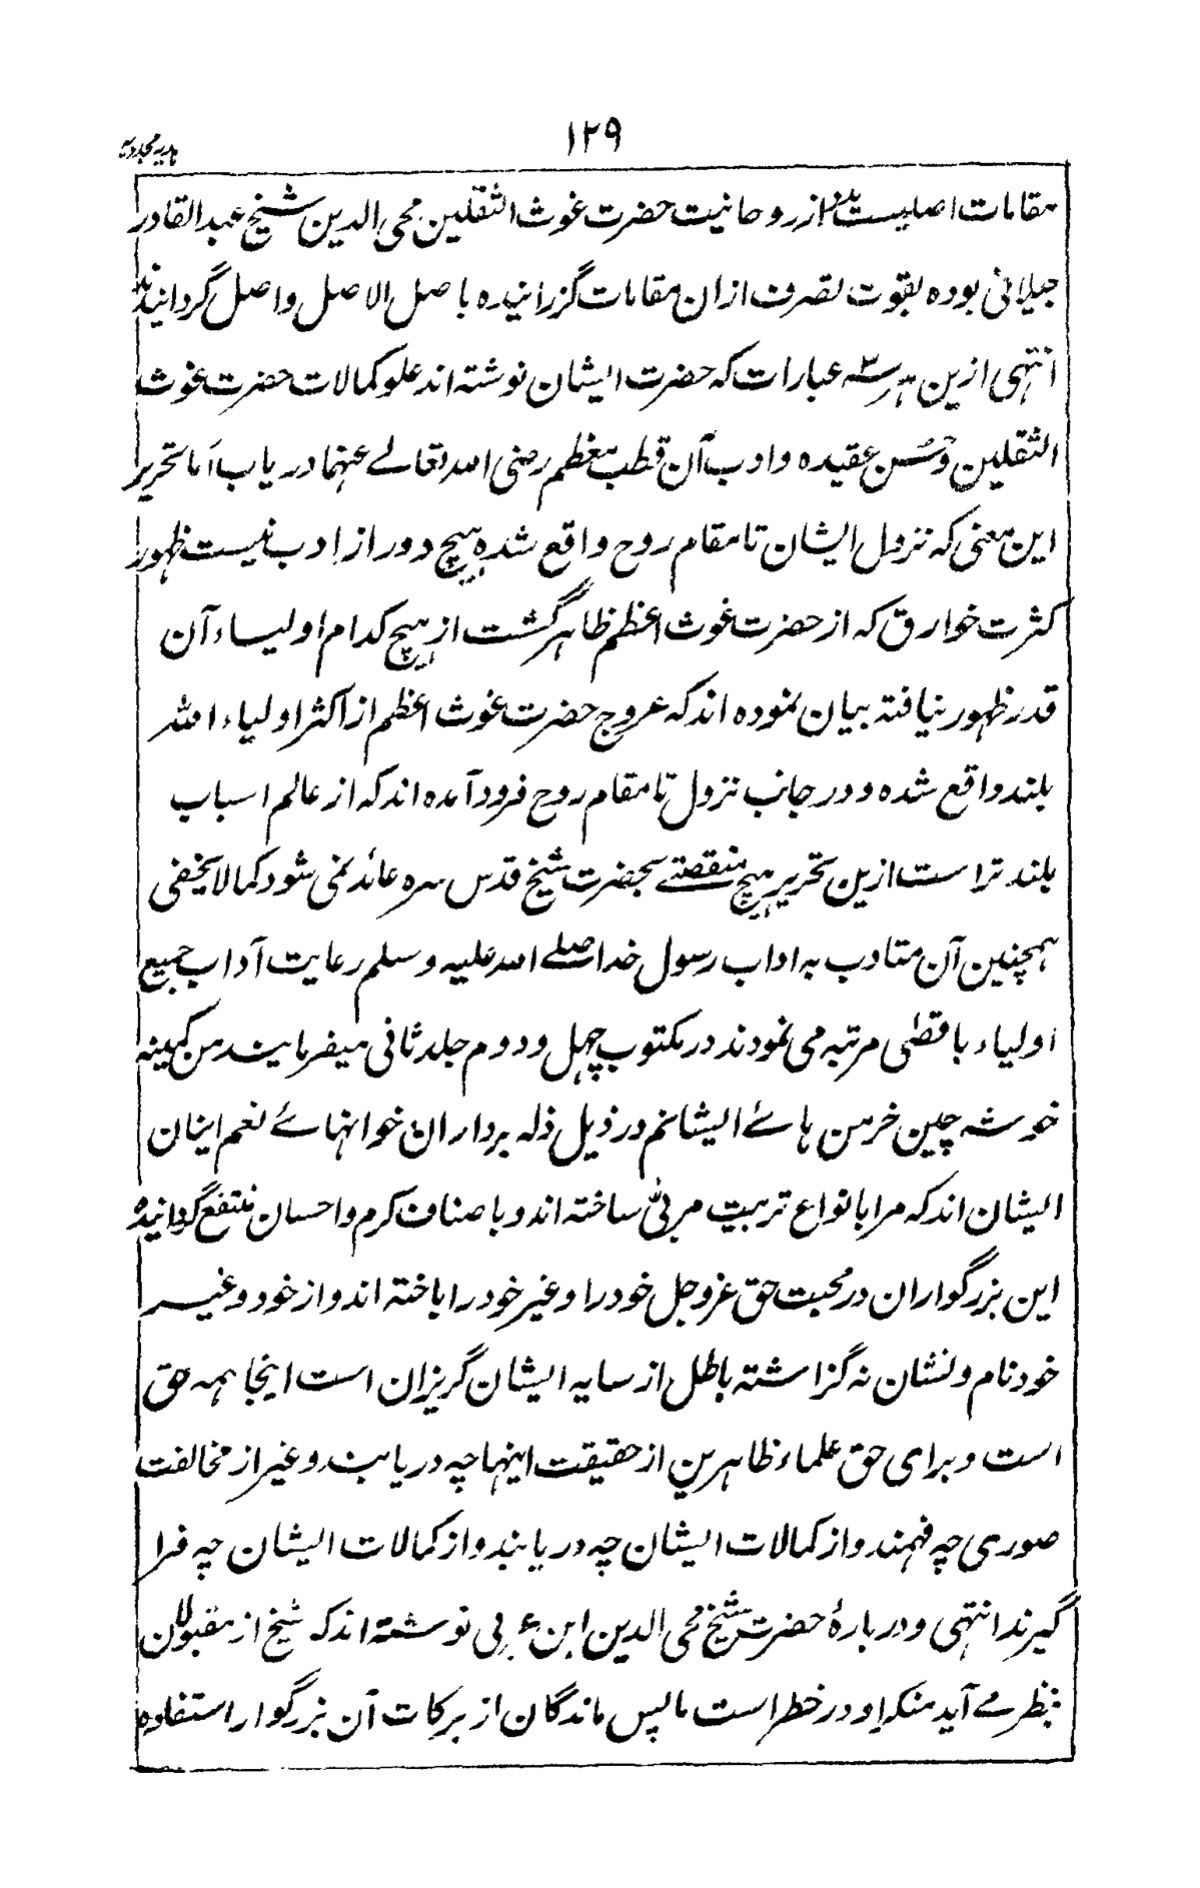 ۱۲۹
ہدیہ مجددیہ
مقامات اصلیست نیز از روحانیت حضرت غوث الثقلین محی الدین شیخ عبدالقادر
جیلانی بودہ بقوت تصرف ازان مقامات گزرانیدہ باصل الاصل واصل گردانیدند
انتہی ازین ہرسہ عبارات کہ حضرت ایشان نوشتہ اند علو کمالات حضرت غوث
الثقلین وحسن عقیدہ وادب آن قطب معظم رضی اللہ تعالے عنہما دریاب اما تحریر
این معنی کہ نزول ایشان تا مقام روح واقع شدہ ہیچ دور از ادب نیست ظہور
کثرت خوارق کہ از حضرت غوث اعظم ظاہر گشت از ہیچ کدام اولیاء آن
قدر ظہور نیافتہ بیان نمودہ اند کہ عروج حضرت غوث اعظم از اکثر اولیاء اللہ
بلند واقع شدہ و در جانب نزول تا مقام روح فرود آمدہ اند کہ از عالم اسباب
بلند تر است ازین تحریر ہیچ منقصتے بحضرت شیخ قدس سرہ عائد نمی شود کما لا یخفی
ہمچنین آن متادب بہ اداب رسول خدا صلے اللہ علیہ وسلم رعایت آداب جمیع
اولیاء باقصٰی مرتبہ می نمودند در مکتوب چہل و دوم جلد ثانی میفرمایند من کمینہ
خوشہ چین خرمن ہائے ایشانم در ذیل ذلہ برداران خوانہائے نعم اینان
ایشان اند کہ مرا بانواع تربیت مربی ساختہ اند و باصناف کرم واحسان منتفع گردانیدہ
این بزرگواران در محبت حق عزوجل خود را و غیر خود را باختہ اند و از خود و غیر
خود نام و نشان نہ گزاشتہ باطل از سایہ ایشان گریزان است اینجا ہمہ حق
است و برای حق علماء ظاہرین از حقیقت اینہا چہ دریابند و غیر از مخالفت
صوری چہ فہمند و از کمالات ایشان چہ دریابند و از کمالات ایشان چہ فرا
گیرند انتہی و دربارۂ حضرت شیخ محی الدین ابن عربی نوشتہ اند کہ شیخ از مقبولان
بنظر مے آید منکر او در خطر است ما پس ماندگان از برکات آن بزرگوار استفادہ